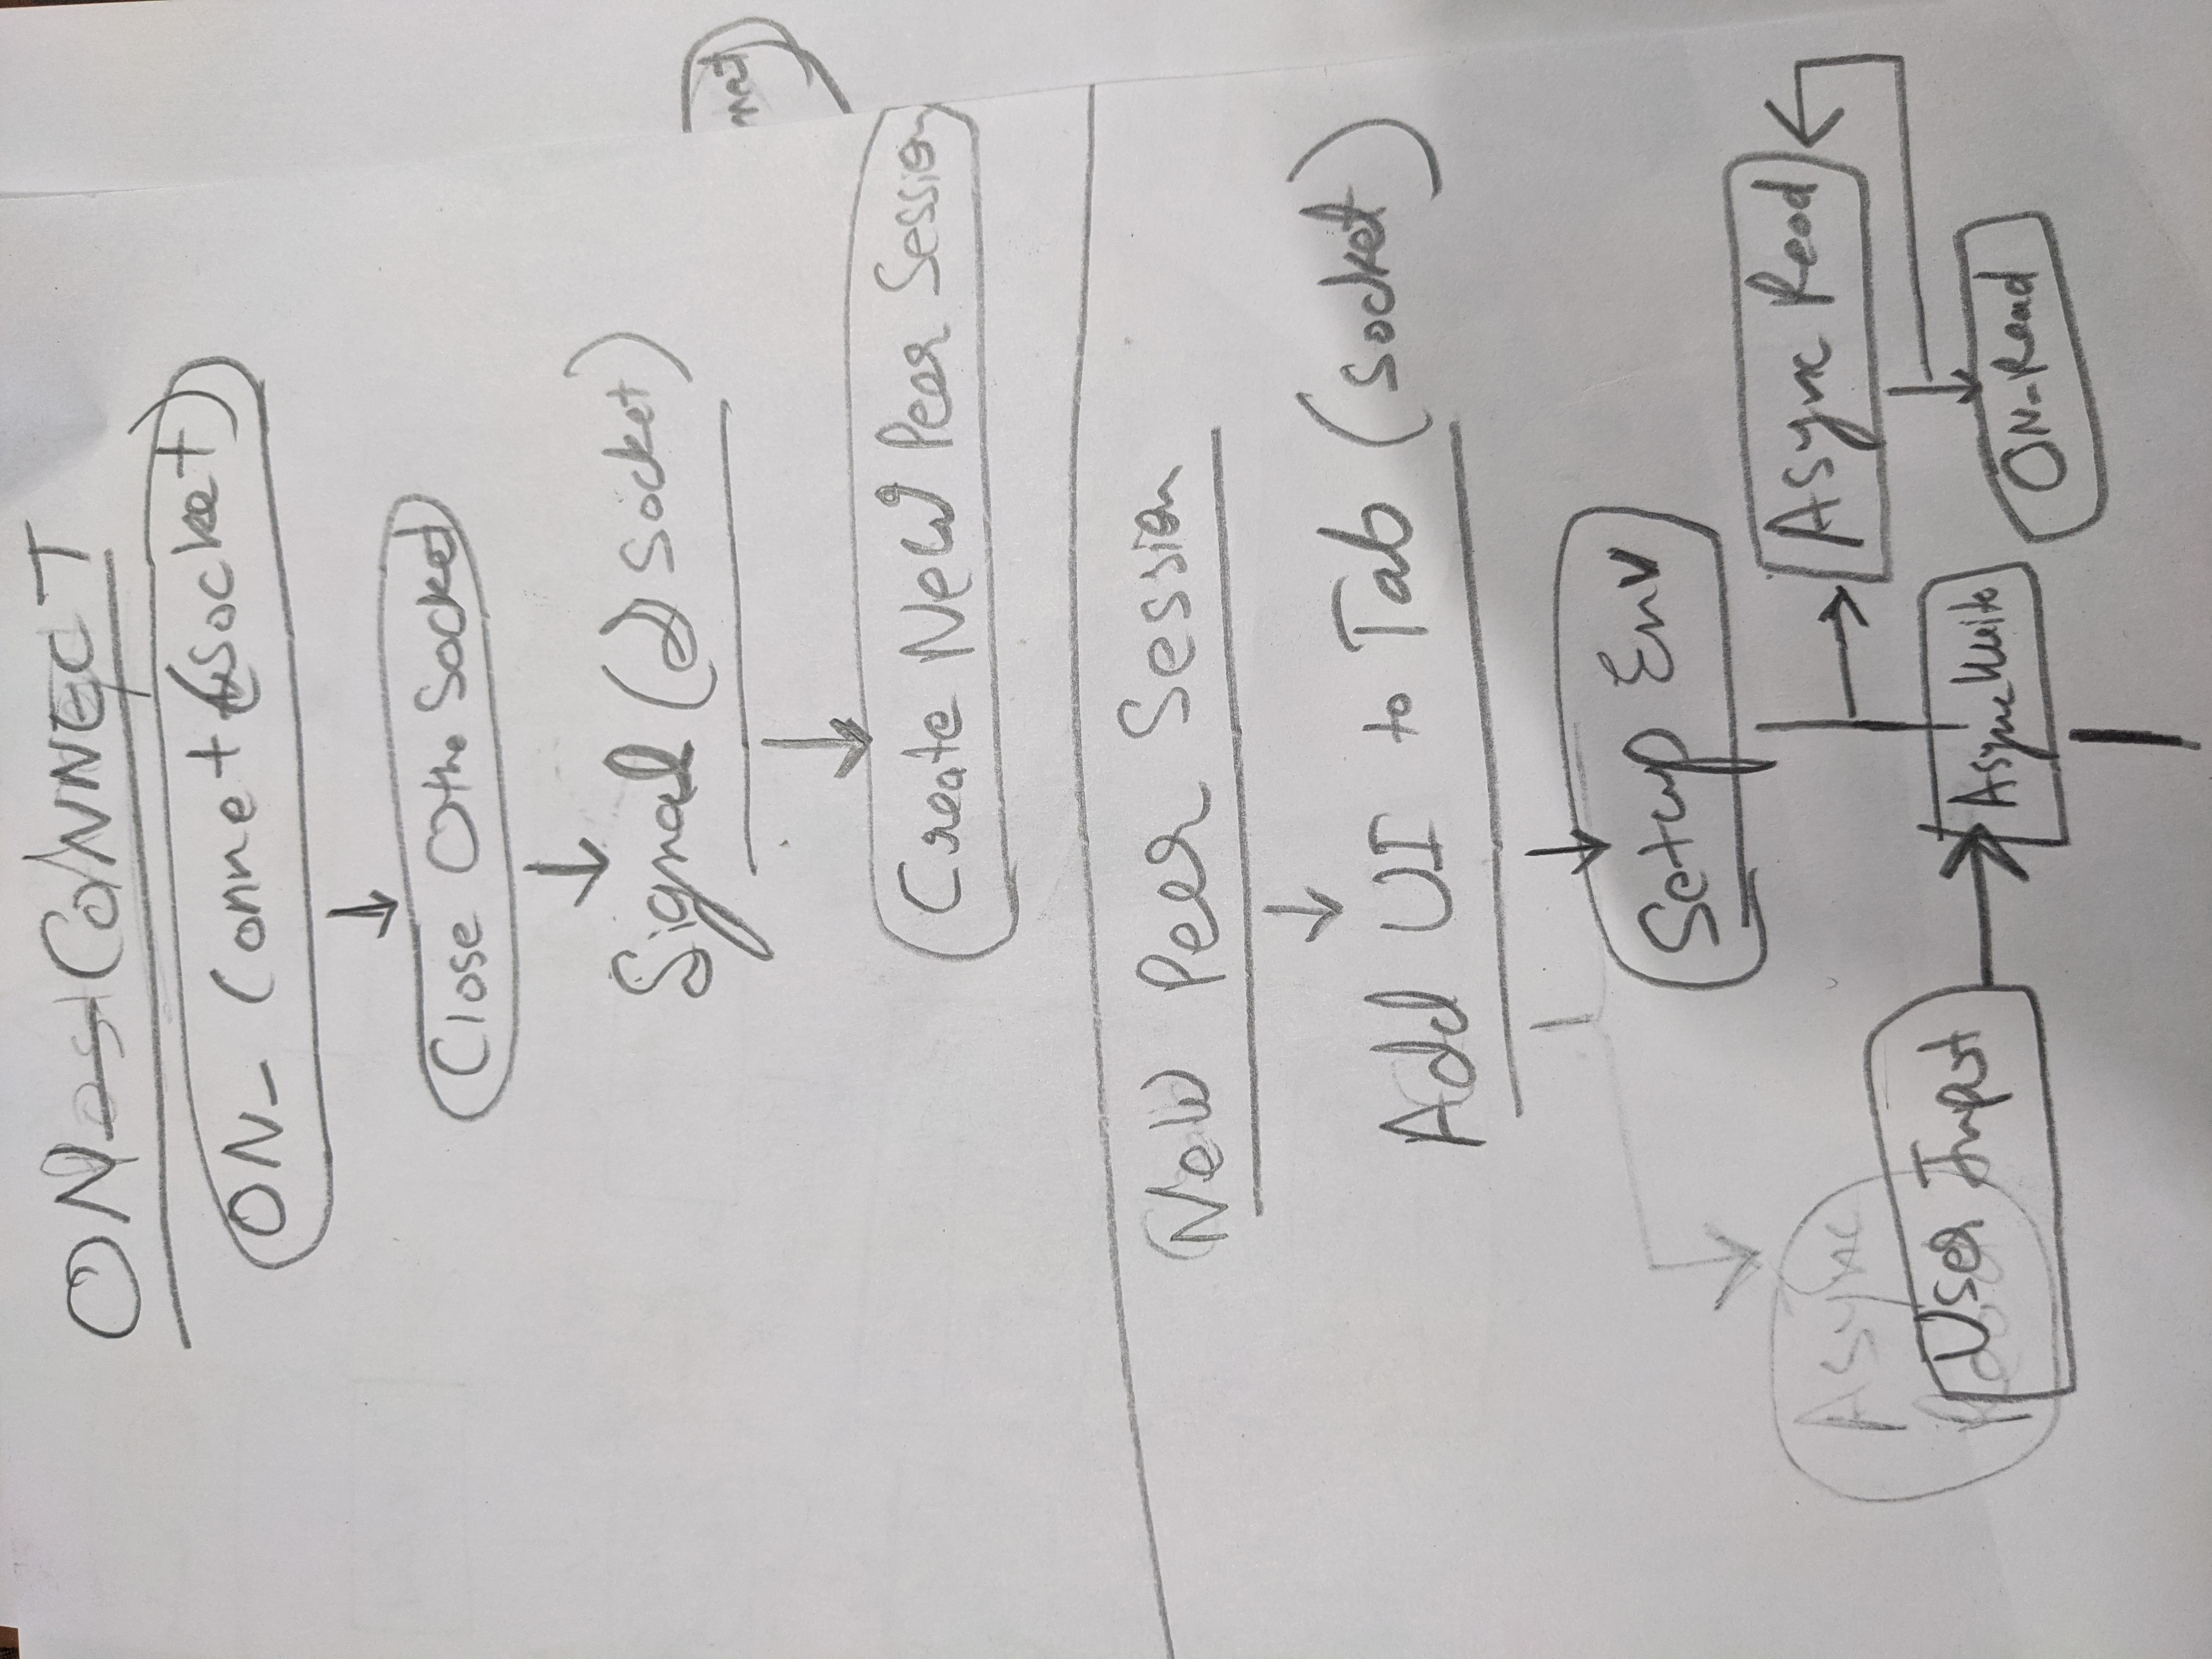 ON_CONNECT
ON_ Connet (socket)
Close Othe Socket
Signal (2 Socket)
net)
Create New Peer Session
New Peer Session
Add UI to Tab (socket)
Setup Env
Async Read
Async
User Input
Async Write
ON_Read